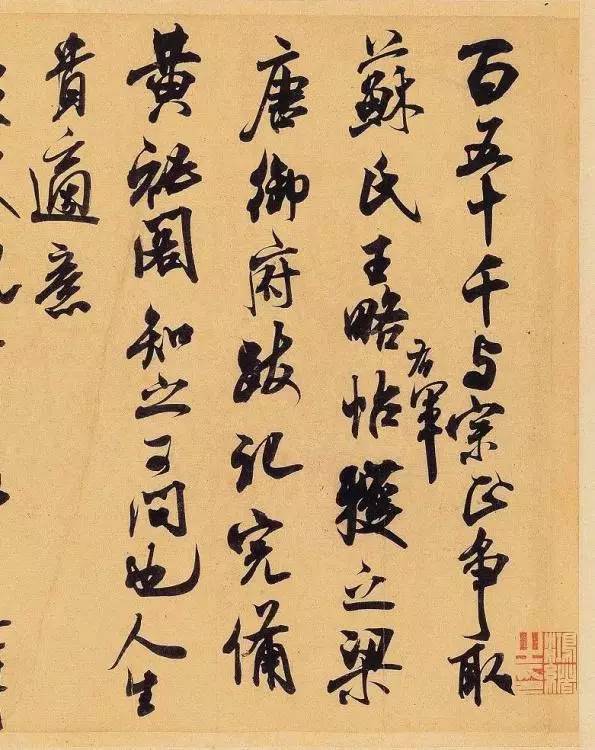 百五十千与宗正争取
右軍
蘇氏王略帖獲之梁
唐御府跋記完備
黃秘閣知之可問也人生
貴適意